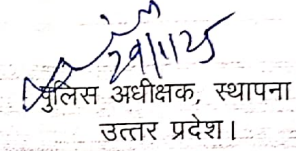 29/11/25
पुलिस अधीक्षक, स्थापना
उत्तर प्रदेश।